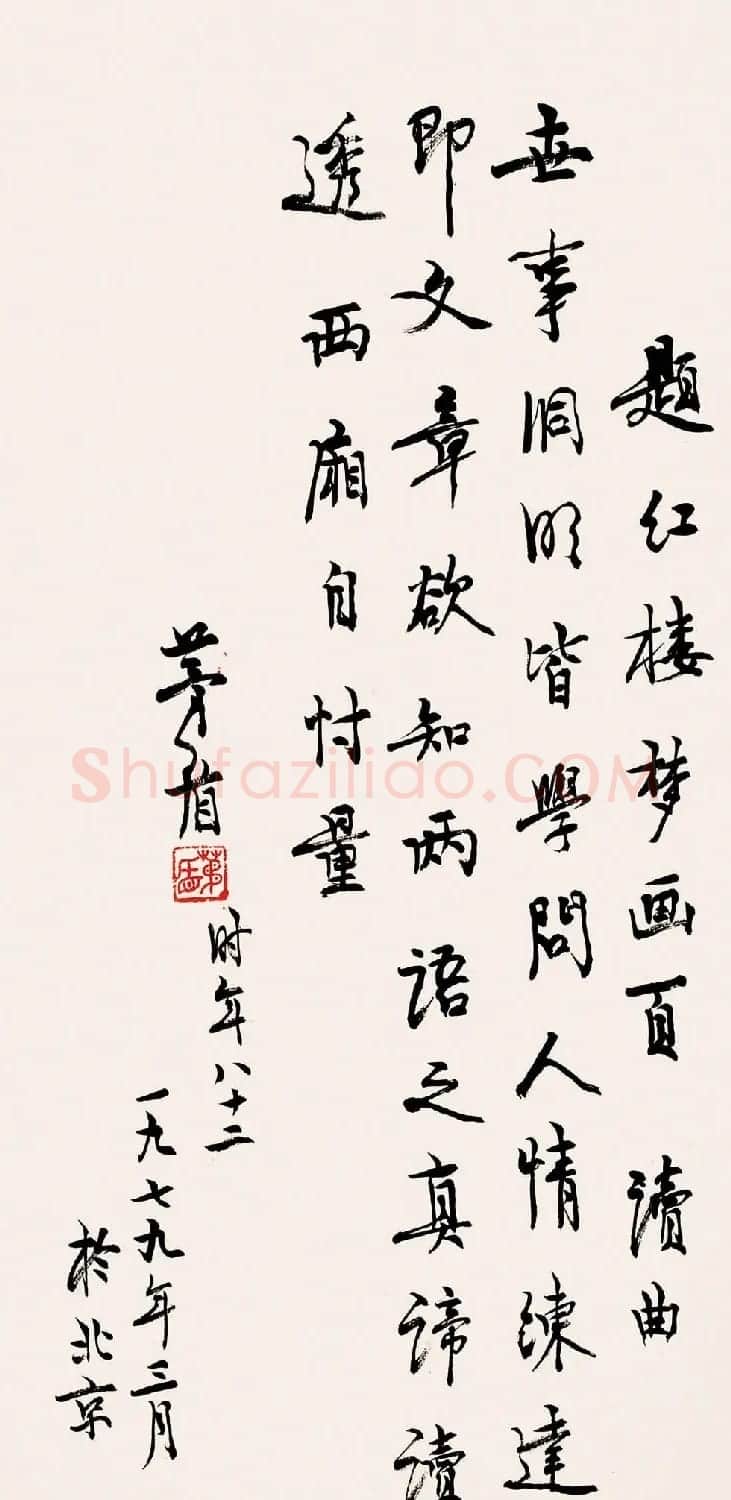 题红楼梦画页 读曲
世事洞明皆學問人情练達
即文章欲知两语之真谛读
透西廂自忖量
茅盾
时年八十二
一九七九年三月
於北京
Shufazilido.COM